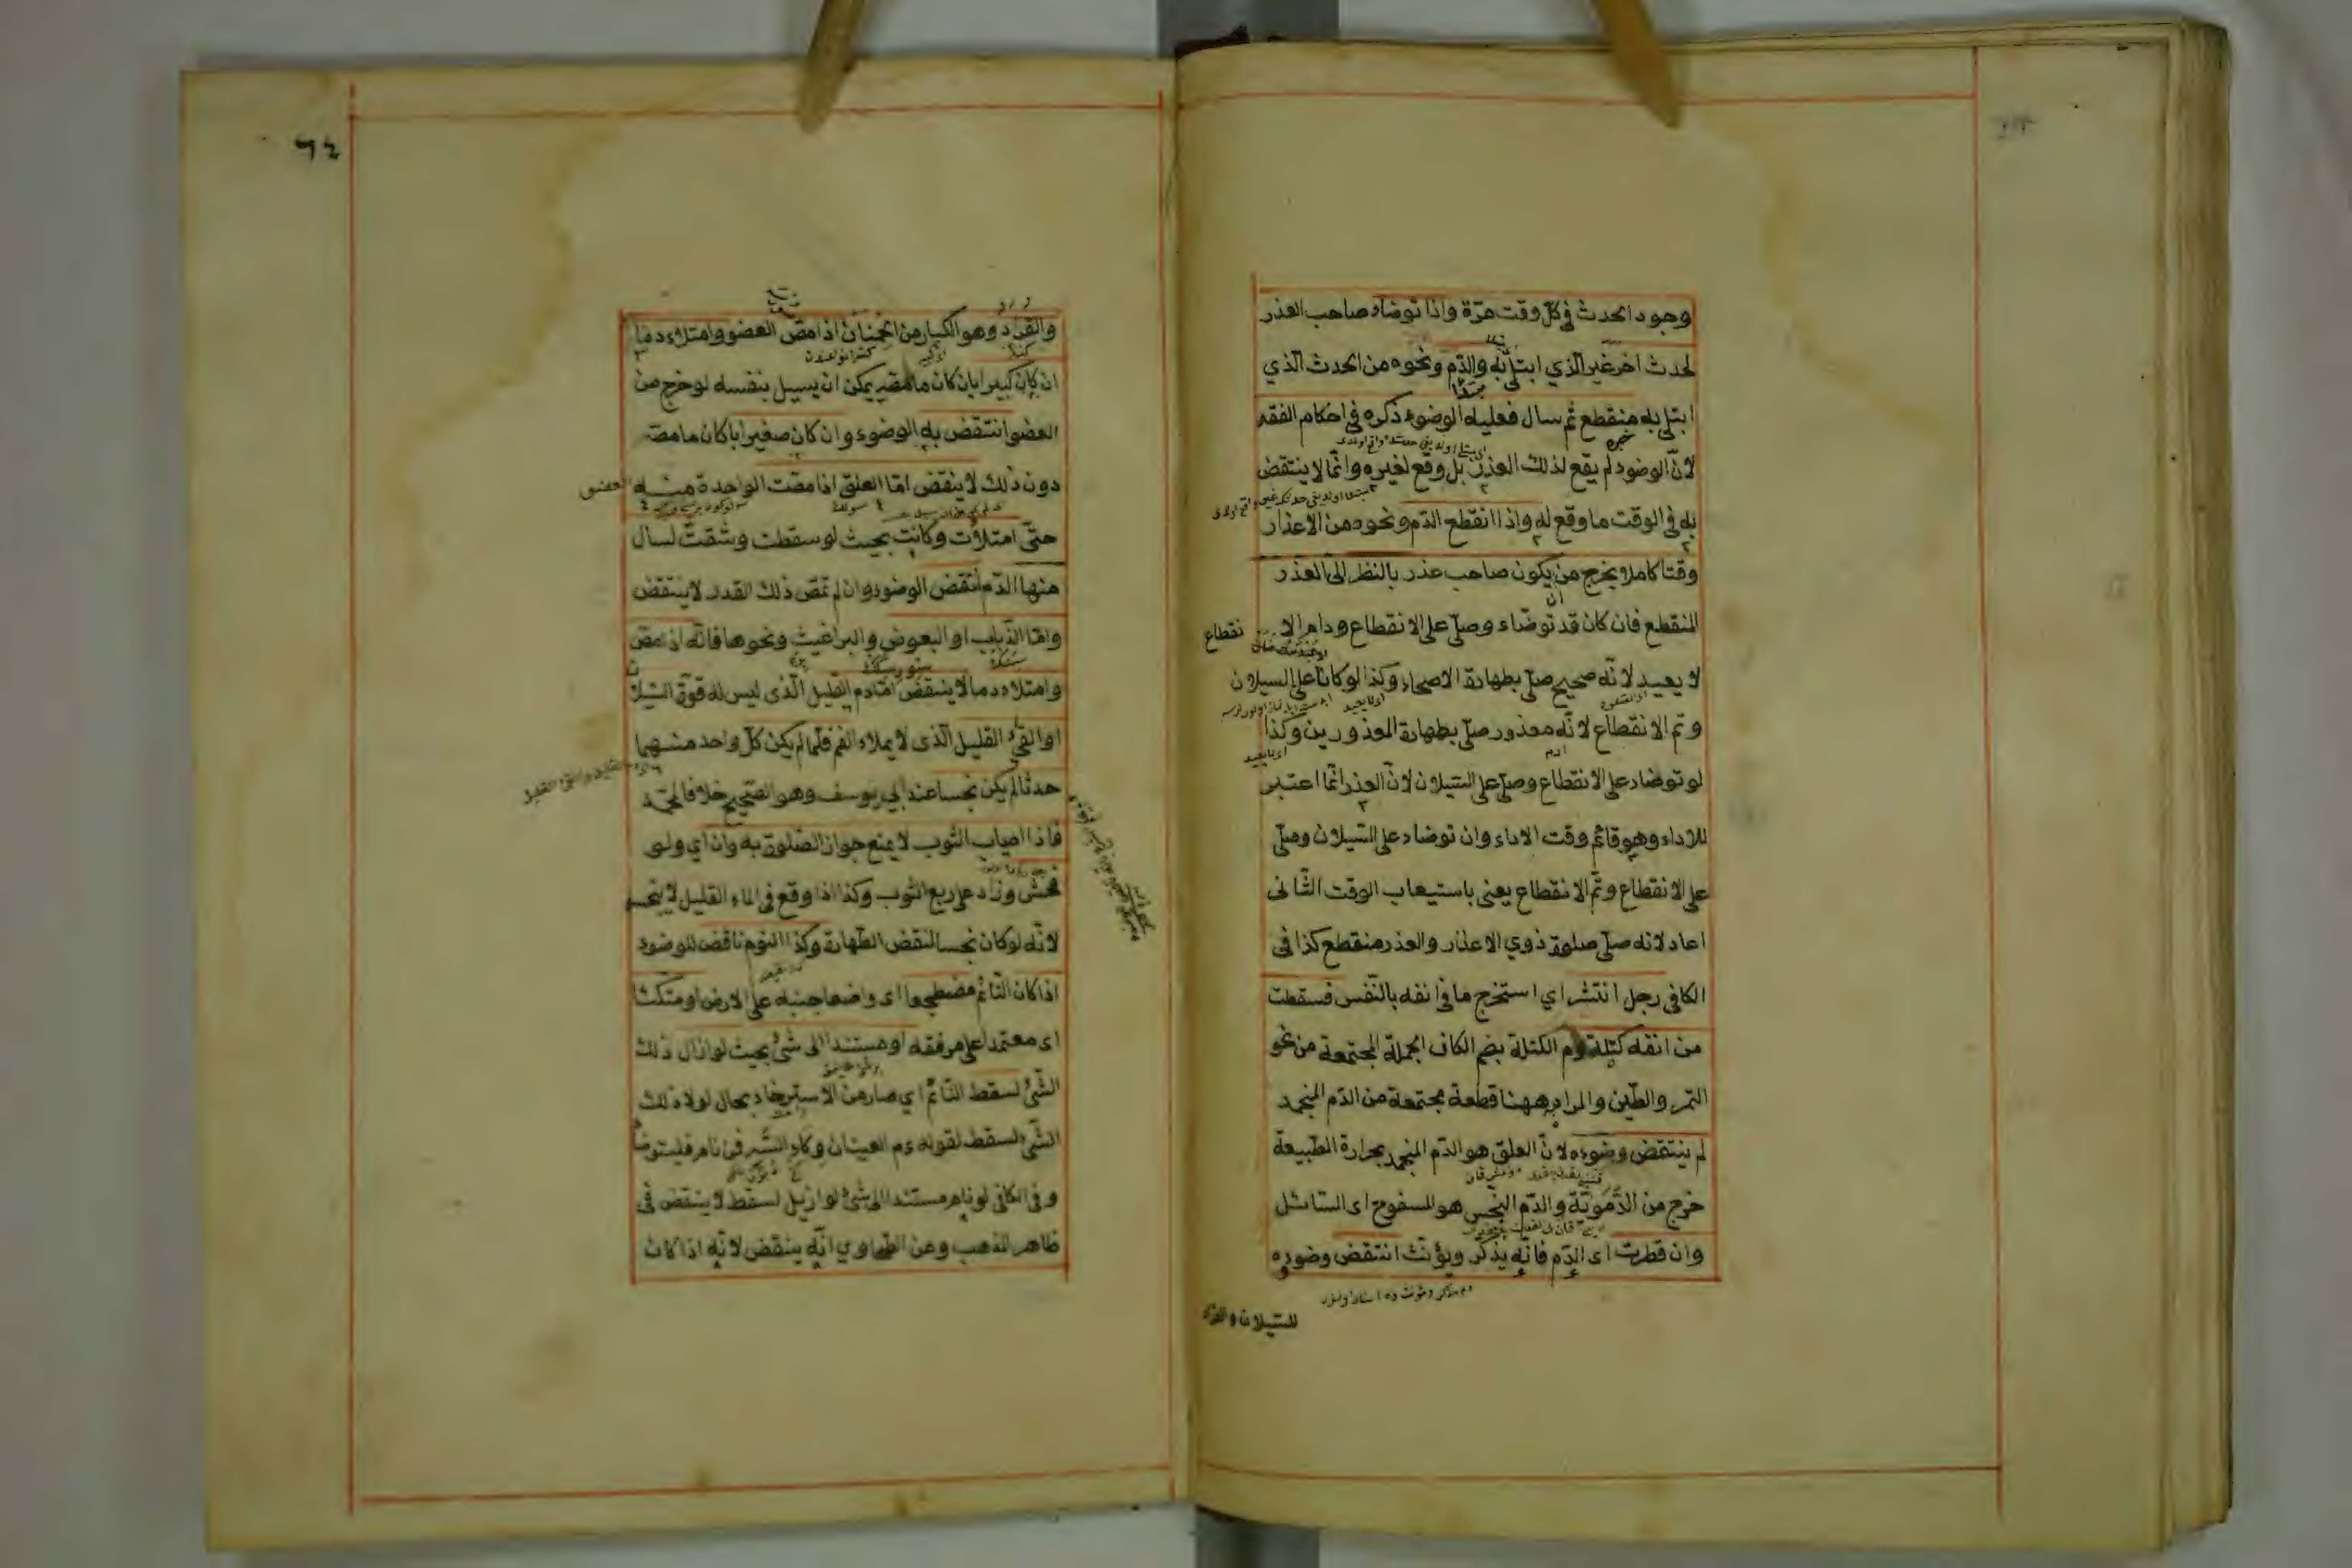 وجود الحدث في كلّ وقت مرّة واذا توضاء صاحب العذر
لحدث اخر غير الّذي ابتلي به والدّم ونحوه من الحدث الّذي
ابتلي به منقطع ثم سال فعليه الوضوء ذكره في احكام الفقه
لانّ الوضوء لم يقع لذلك العذر بل وقع لغيره وانّما لا ينتقض
به في الوقت ما وقع له واذا انقطع الدّم ونحوه من الاعذار
وقتا كاملا يخرج من ان يكون صاحب عذر بالنظر الى العذر
المنقطع فان كان قد توضاء وصلّى على الانقطاع ودام الانقطاع
لا يعيد لانّه صحيح صلّى بطهارة الاصحاء وكذا لو كانا على السيلان
وتم الانقطاع لانّه معذور صلّى بطهارة المعذورين وكذا
لو توضاء على الانقطاع وصلّى على السّيلان لانّ العذر انّما اعتبر
للاداء وهو قائم وقت الاداء وان توضاء على السّيلان وصلّى
على الانقطاع وتمّ الانقطاع يعنى باستيعاب الوقت الثّانى
اعاد لانه صلّى صلوة ذوي الاعذار والعذر منقطع كذا فى
الكافى رجل انتثر اي استخرج ما فى انفه بالنّفس فسقطت
من انفه كتلة دم الكتلة بضم الكاف الجملة المجتمعة من نحو
التمر والطّين والمراد ههنا قطعة مجتمعة من الدّم المنجمد
لم ينتقض وضوءه لانّ العلق هو الدّم المنجمد بحرارة الطّبيعة
خرج من الدّمويّة والدّم النجس هو المسفوح اى السّائل
وان قطرت اى الدّم فانّه يذكّر ويؤنّث انتقض وضوءه
للسّيلان والقراد
٦٤
والقراد وهو الكبار من الحمنان اذا مصّ العضو وامتلاء دما
ان كان كبيرا بان كان ما مصّه يمكن ان يسيل بنفسه لو خرج من
العضو انتقض به الوضوء وان كان صغيرا بان كان ما مصّه
دون ذلك لا ينقض امّا العلق اذا مصّت الواحدة منه العضو
حتّى امتلأت وكانت بحيث لو سقطت وشقّت لسال
منها الدّم انتقض الوضوء وان لم تمصّ ذلك القدر لا ينتقض
وامّا الذّباب او البعوض والبراغيث ونحوها فانّه اذا مصّ
وامتلاء دما لا ينتقض امّا دم القليل الّذى ليس له قوّة السّيلان
او القئ القليل الّذى لا يملاء الفم فلمّا لم يكن كلّ واحد منهما
حدثا لم يكن نجسا عند ابي يوسف وهو الصّحيح خلافا لمحمّد
فاذا اصاب الثّوب لا يمنع جواز الصّلوة به وان اي ولو
فحش وزاد على ربع الثوب وكذا اذا وقع فى الماء القليل لا ينجسه
لانّه لو كان نجسا لنقض الطّهارة وكذا النّوم ناقض للوضوء
اذا كان النّائم مضطجعا اى واضعا جنبه على الارض او متّكئا
اى معتمدا على مرفقه او مستندا الى شئ بحيث لو ازال ذلك
الشّئ لسقط النّائم اي صار من الاسترخاء بحال لولا ذلك
الشّئ لسقط لقوله ءم العينان وكاء السّه فمن نام فليتوضاء
وفى الكافى لو نام مستندا الى شئ لو ازيل لسقط لا ينتقض فى
ظاهر المذهب وعن الطّحاوي انّه ينقض لانّه اذا كان